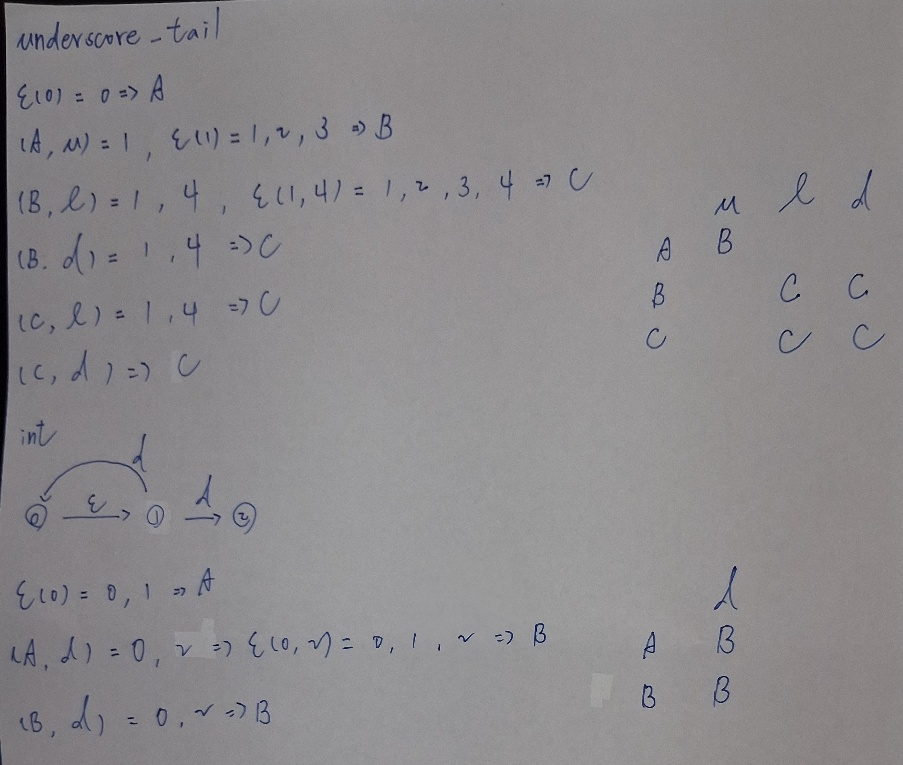 underscore-tail
ε(0) = 0 => A
(A, u) = 1, ε(1) = 1, 2, 3 => B
(B, l) = 1, 4, ε(1,4) = 1, 2, 3, 4 => C
(B. d) = 1, 4 => C
(C, l) = 1, 4 => C
(C, d) => C
u l d
A B
B C C
C C C
int
d
0 ε 1 d 2
ε(0) = 0, 1 => A
(A, d) = 0, 2 => ε(0, 2) = 0, 1, 2 => B
(B, d) = 0, 2 => B
d
A B
B B